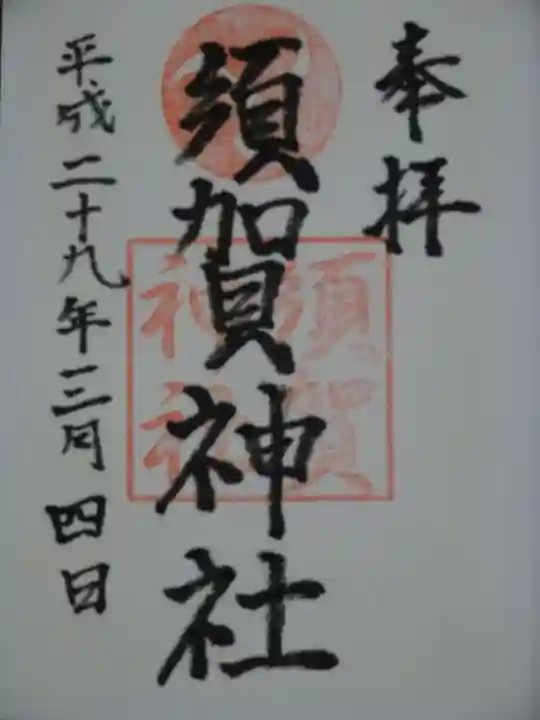 奉拝
須賀神社
須賀
神社
平成二十九年三月四日